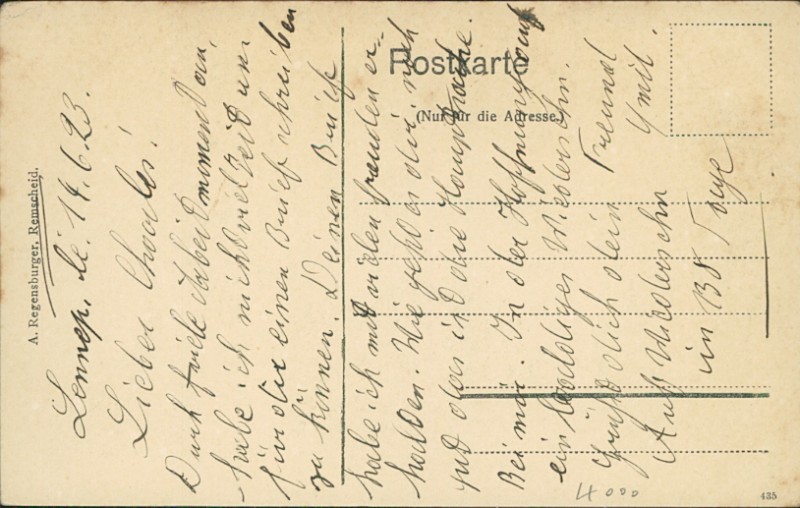 Postkarte
(Nur für die Adresse.)
A. Regensburger, Remscheid.
Lennep, d. 14.6.23.
Lieber Charles!
Durch viele Arbeit momentan,
habe ich nicht viel Zeit um
für dir einen Brief schreiben
zu können. Deinen Brief
habe ich mit vielen freuden er-
halden. Wie gehd es dir noch
gud das isd die Haupsache.
Bei mir. In der Hoffnung auf
ein baldiges Wiedersehn.
Grüßd dich dein Freund
Emil.
Auf Wiedersehn
in 138 Tage
4000
435